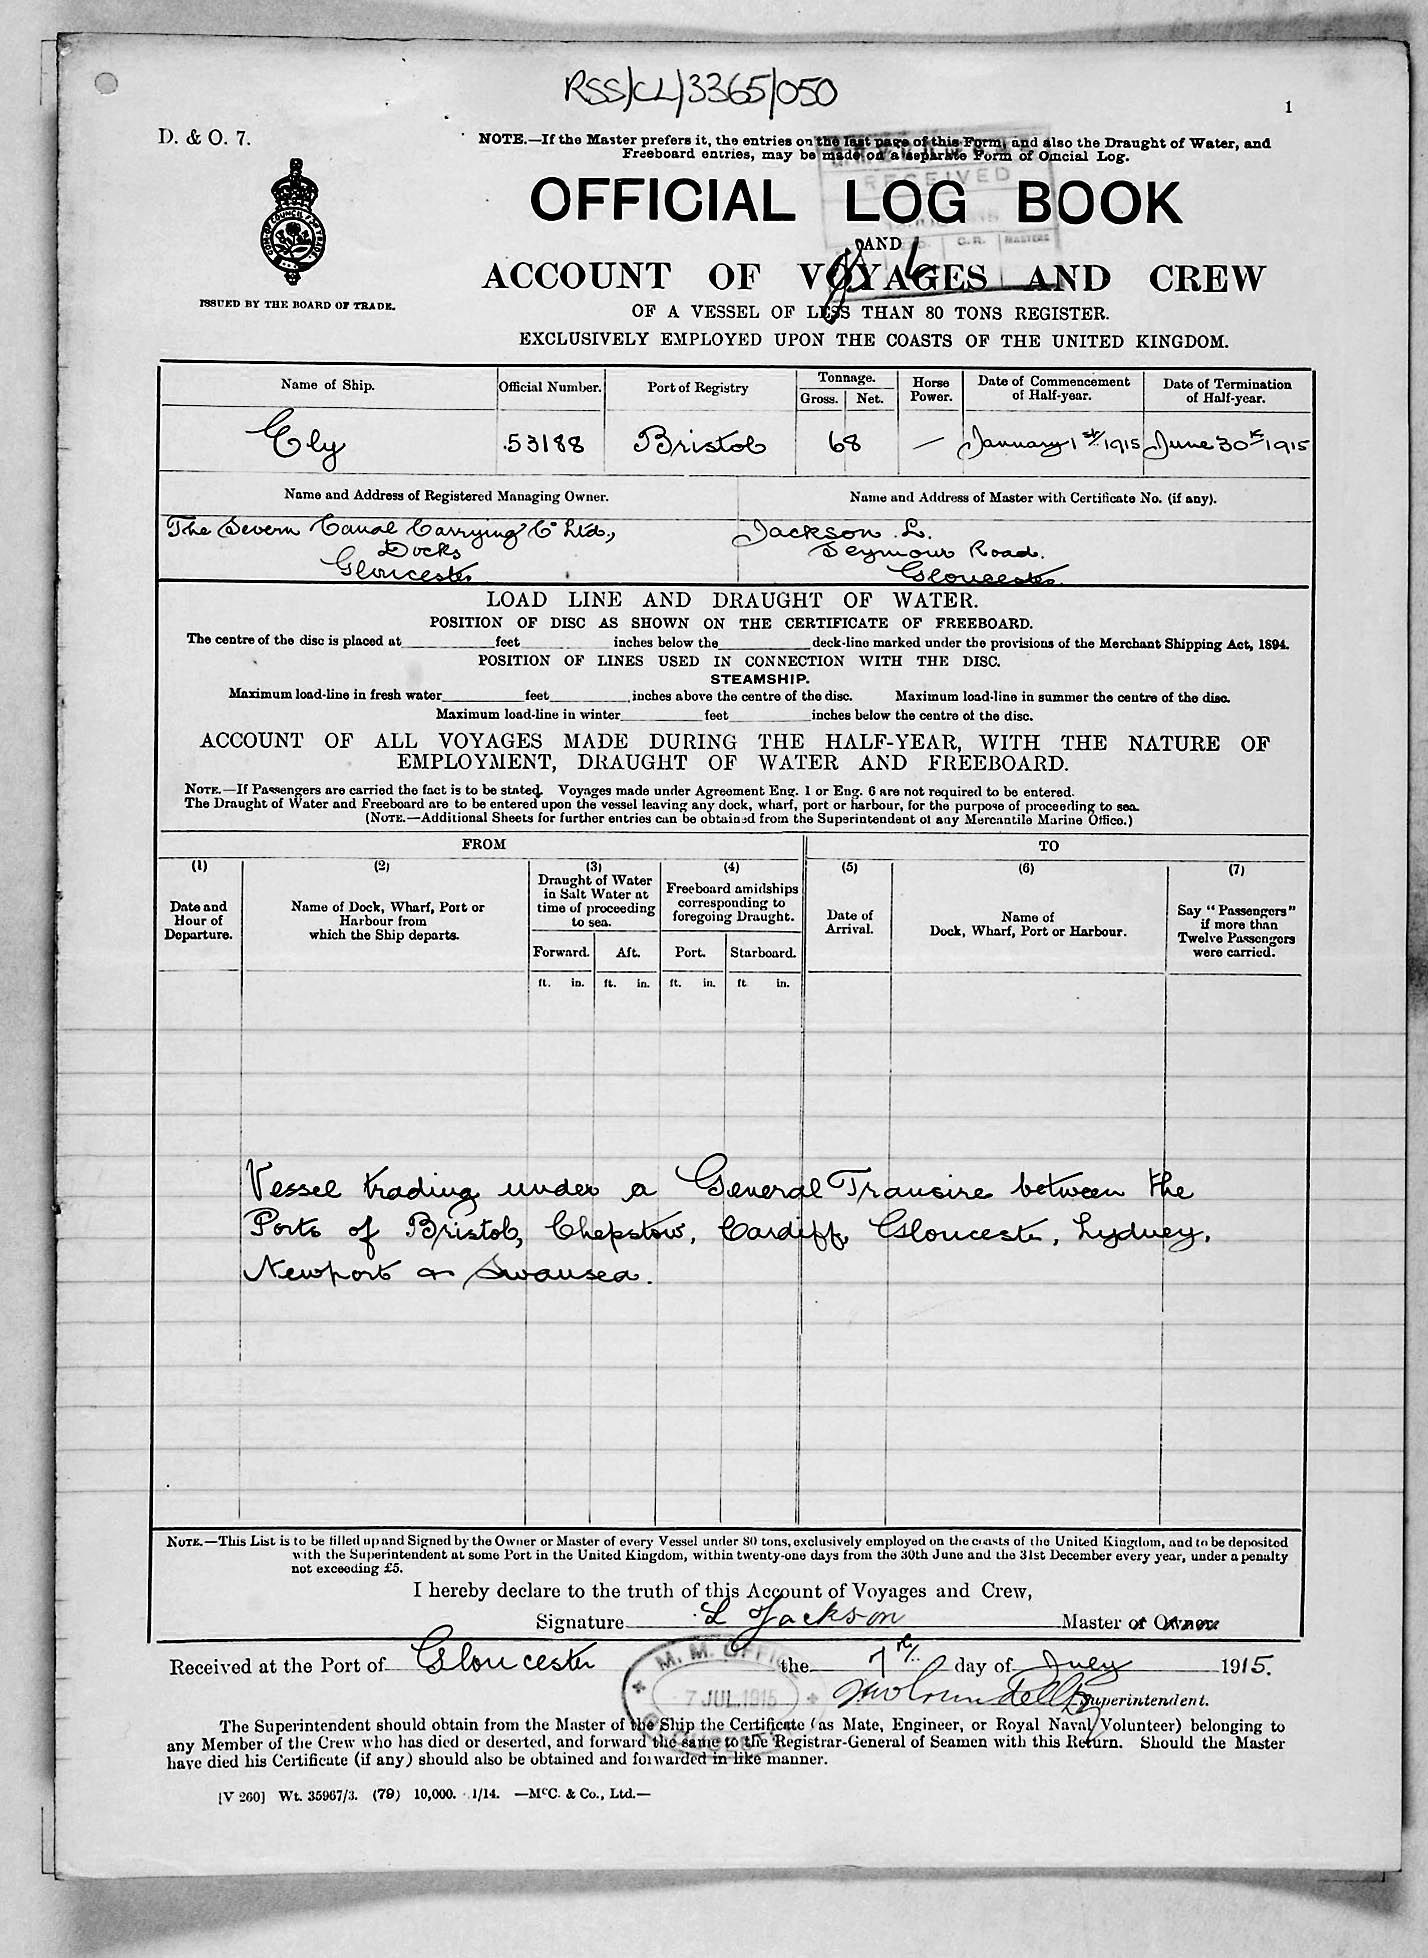 RSS/CL/3365/050
1
D. & O. 7.
NOTE.—If the Master prefers it, the entries on the last page of this Form, and also the Draught of Water, and
Freeboard entries, may be made on a separate Form of Official Log.
RECEIVED
OFFICIAL LOG BOOK
C.R. MASTERS
AND
ACCOUNT OF VOYAGES AND CREW
ISSUED BY THE BOARD OF TRADE.
OF A VESSEL OF LESS THAN 80 TONS REGISTER.
EXCLUSIVELY EMPLOYED UPON THE COASTS OF THE UNITED KINGDOM.
Name of Ship. Official Number. Port of Registry Tonnage. Gross. Net. Horse Power. Date of Commencement of Half-year. Date of Termination of Half-year.
Ely 53188 Bristol 68 — January 1st 1915 June 30th 1915
Name and Address of Registered Managing Owner. Name and Address of Master with Certificate No. (if any).
The Severn Canal Carrying Co Ltd., Jackson L.
Docks Seymour Road.
Gloucester Gloucester.
LOAD LINE AND DRAUGHT OF WATER.
POSITION OF DISC AS SHOWN ON THE CERTIFICATE OF FREEBOARD.
The centre of the disc is placed at feet inches below the deck-line marked under the provisions of the Merchant Shipping Act, 1894.
POSITION OF LINES USED IN CONNECTION WITH THE DISC.
STEAMSHIP.
Maximum load-line in fresh water feet inches above the centre of the disc. Maximum load-line in summer the centre of the disc.
Maximum load-line in winter feet inches below the centre of the disc.
ACCOUNT OF ALL VOYAGES MADE DURING THE HALF-YEAR, WITH THE NATURE OF
EMPLOYMENT, DRAUGHT OF WATER AND FREEBOARD.
NOTE.—If Passengers are carried the fact is to be stated. Voyages made under Agreement Eng. 1 or Eng. 6 are not required to be entered.
The Draught of Water and Freeboard are to be entered upon the vessel leaving any dock, wharf, port or harbour, for the purpose of proceeding to sea.
(NOTE.—Additional Sheets for further entries can be obtained from the Superintendent of any Mercantile Marine Office.)
FROM TO
(1) (2) (3) (4) (5) (6) (7)
Date and Hour of Departure. Name of Dock, Wharf, Port or Harbour from which the Ship departs. Draught of Water in Salt Water at time of proceeding to sea. Freeboard amidships corresponding to foregoing Draught. Date of Arrival. Name of Dock, Wharf, Port or Harbour. Say "Passengers" if more than Twelve Passengers were carried.
Forward. Aft. Port. Starboard.
ft. in. ft. in. ft. in. ft in.
Vessel trading under a General Transire between the
Ports of Bristol, Chepstow, Cardiff, Gloucester, Lydney,
Newport or Swansea.
NOTE.—This List is to be filled up and Signed by the Owner or Master of every Vessel under 80 tons, exclusively employed on the coasts of the United Kingdom, and to be deposited
with the Superintendent at some Port in the United Kingdom, within twenty-one days from the 30th June and the 31st December every year, under a penalty
not exceeding £5.
I hereby declare to the truth of this Account of Voyages and Crew,
Signature L Jackson Master or Owner
Received at the Port of Gloucester the 7th day of July 1915.
M. M. OFFICE
7 JUL.1915
Superintendent.
The Superintendent should obtain from the Master of the Ship the Certificate (as Mate, Engineer, or Royal Naval Volunteer) belonging to
any Member of the Crew who has died or deserted, and forward the same to the Registrar-General of Seamen with this Return. Should the Master
have died his Certificate (if any) should also be obtained and forwarded in like manner.
[V 260] Wt. 35967/3. (79) 10,000. 1/14. —McC. & Co., Ltd.—